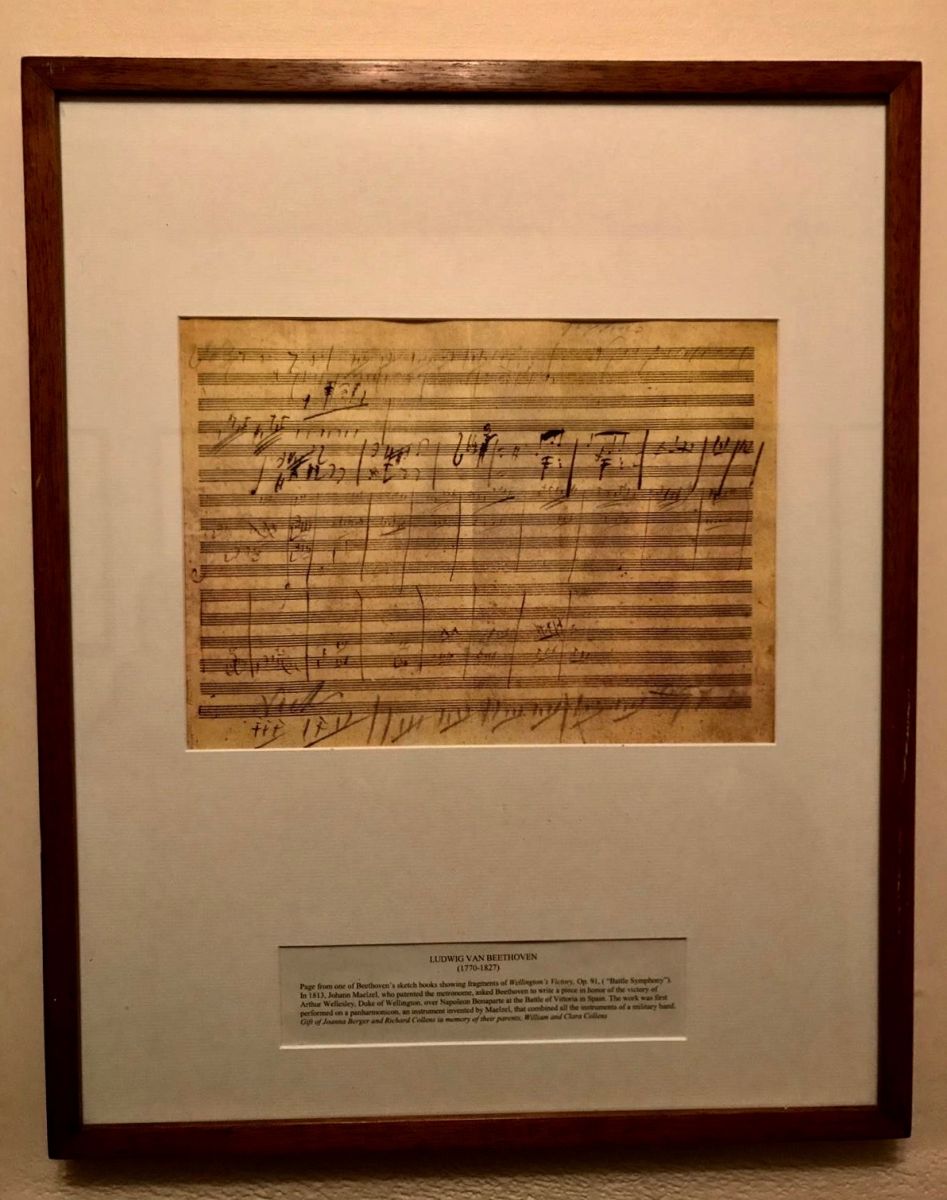 LUDWIG VAN BEETHOVEN
(1770-1827)
Page from one of Beethoven's sketch books showing fragments of Wellington's Victory, Op. 91, ( "Battle Symphony").
In 1813, Johann Maelzel, who patented the metronome, asked Beethoven to write a piece in honor of the victory of
Arthur Wellesley, Duke of Wellington, over Napoleon Bonaparte at the Battle of Vittoria in Spain. The work was first
performed on a panharmonicon, an instrument invented by Maelzel, that combined all the instruments of a military band.
Gift of Joanna Berger and Richard Collens in memory of their parents, William and Clara Collens